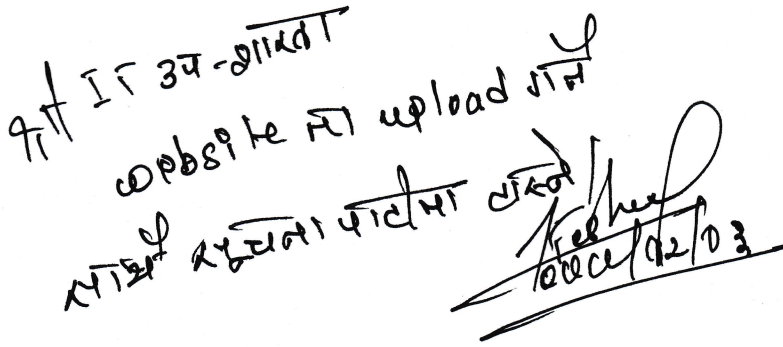 श्री IT उप-शाखा
website मा upload गर्ने
साथै सूचना पाटीमा टास्ने।
/12/03